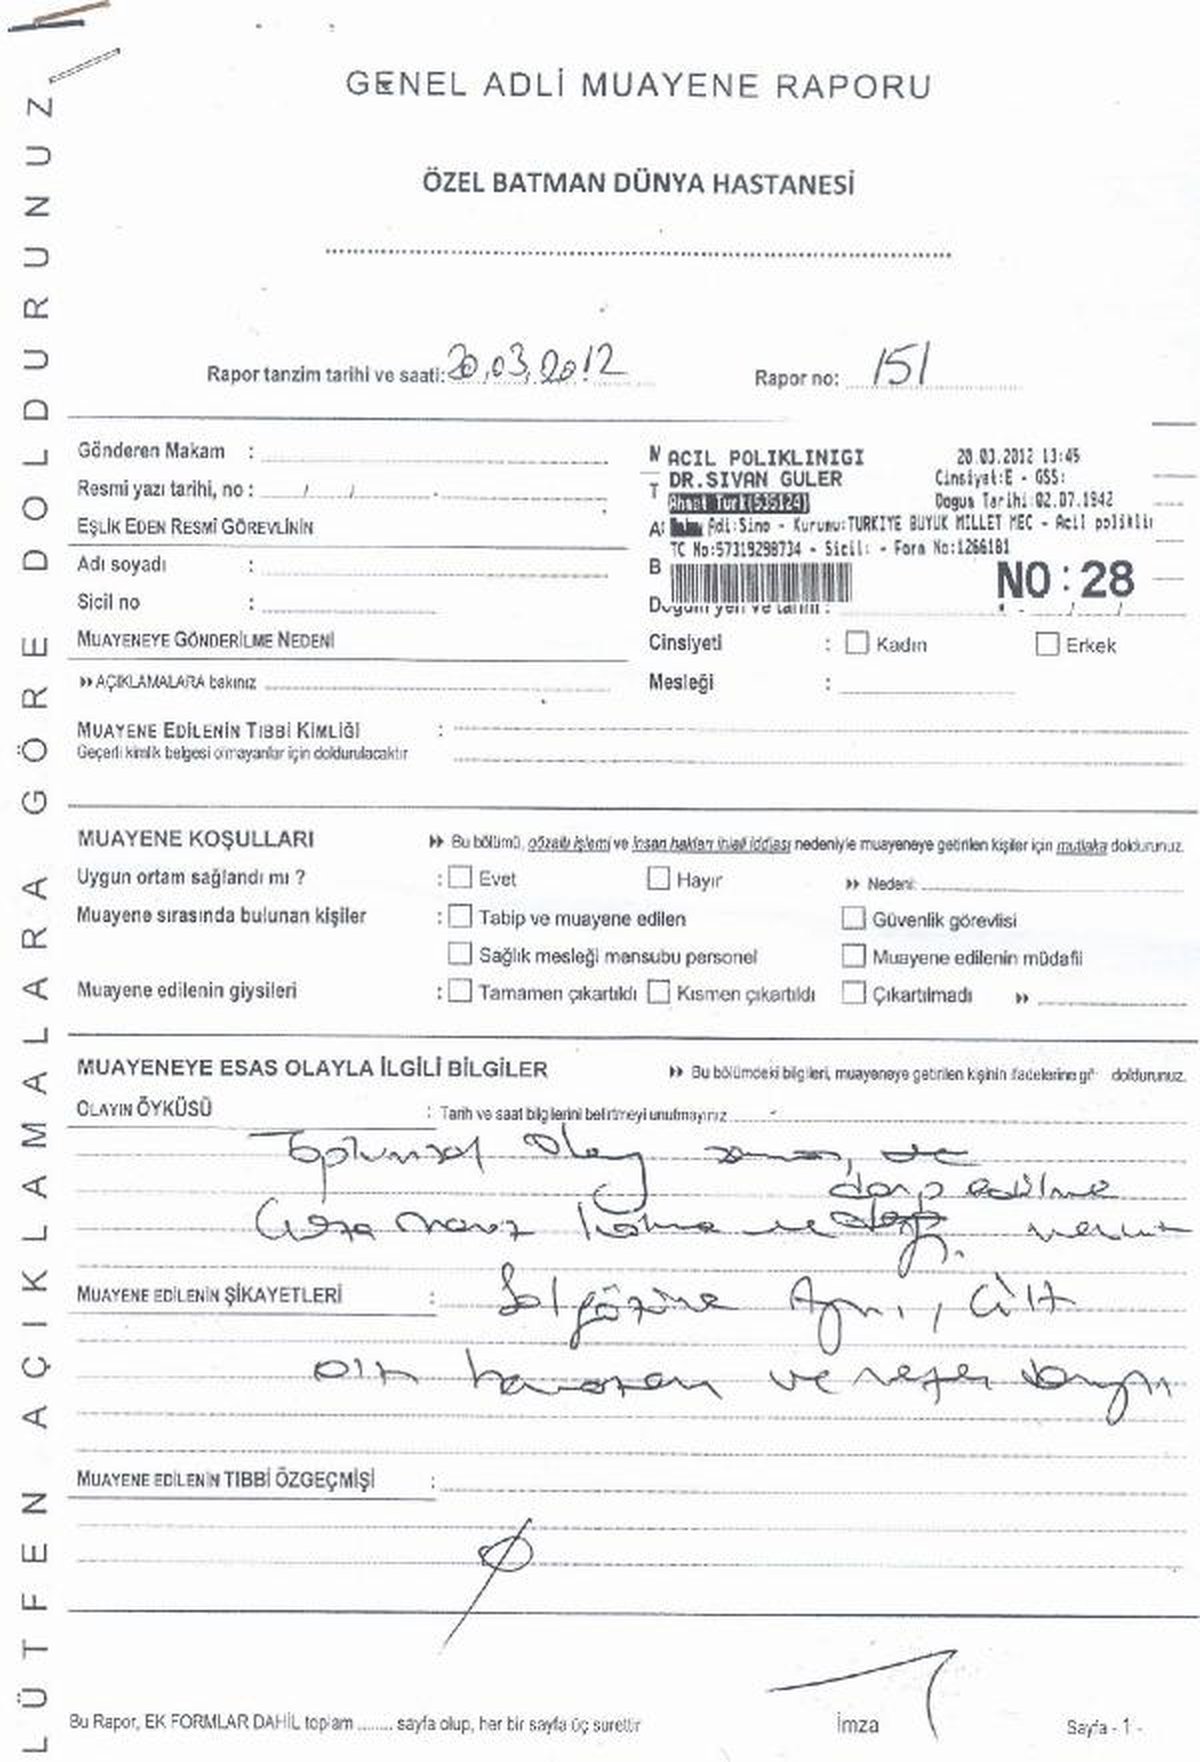 GENEL ADLİ MUAYENE RAPORU
ÖZEL BATMAN DÜNYA HASTANESİ
Rapor tanzim tarihi ve saati: 20.03.2012 Rapor no: 151
Gönderen Makam :
Resmi yazı tarihi, no : / /
EŞLİK EDEN RESMİ GÖREVLİNİN
Adı soyadı :
Sicil no :
MUAYENEYE GÖNDERİLME NEDENİ
AÇIKLAMALARA bakınız
ACIL POLIKLINIGI 20.03.2012 13:45
DR.SIVAN GULER Cinsiyet:E - GSS:
Ahmet Turk(535124) Dogus Tarihi:02.07.1942
Adi:Sino - Kurumu:TURKIYE BUYUK MILLET MEC - Acil poliklin
TC No:57319298734 - Sicil: - Form No:1266181
NO:28
Doğum yeri ve tarihi :
Cinsiyeti : Kadın Erkek
Mesleği :
MUAYENE EDİLENİN TIBBİ KİMLİĞİ :
Geçerli kimlik belgesi olmayanlar için doldurulacaktır
MUAYENE KOŞULLARI Bu bölümü, gözaltı işlemi ve insan hakları ihlali iddiası nedeniyle muayeneye getirilen kişiler için mutlaka doldurunuz.
Uygun ortam sağlandı mı ? : Evet Hayır Nedeni:
Muayene sırasında bulunan kişiler : Tabip ve muayene edilen Güvenlik görevlisi
Sağlık mesleği mensubu personel Muayene edilenin müdafii
Muayene edilenin giysileri : Tamamen çıkartıldı Kısmen çıkartıldı Çıkartılmadı
MUAYENEYE ESAS OLAYLA İLGİLİ BİLGİLER Bu bölümdeki bilgileri, muayeneye getirilen kişinin ifadelerine doldurunuz.
OLAYIN ÖYKÜSÜ : Tarih ve saat bilgilerini belirtmeyi unutmayınız
Toplumsal olay
darp edilme
maruz kalma
MUAYENE EDİLENİN ŞİKAYETLERİ : Sol gözüne Ağrı, Cilt
ve nefes
MUAYENE EDİLENİN TIBBİ ÖZGEÇMİŞİ :
Bu Rapor, EK FORMLAR DAHİL toplam ........ sayfa olup, her bir sayfa üç surettir İmza Sayfa - 1 -
LÜTFEN AÇIKLAMALARA GÖRE DOLDURUNUZ